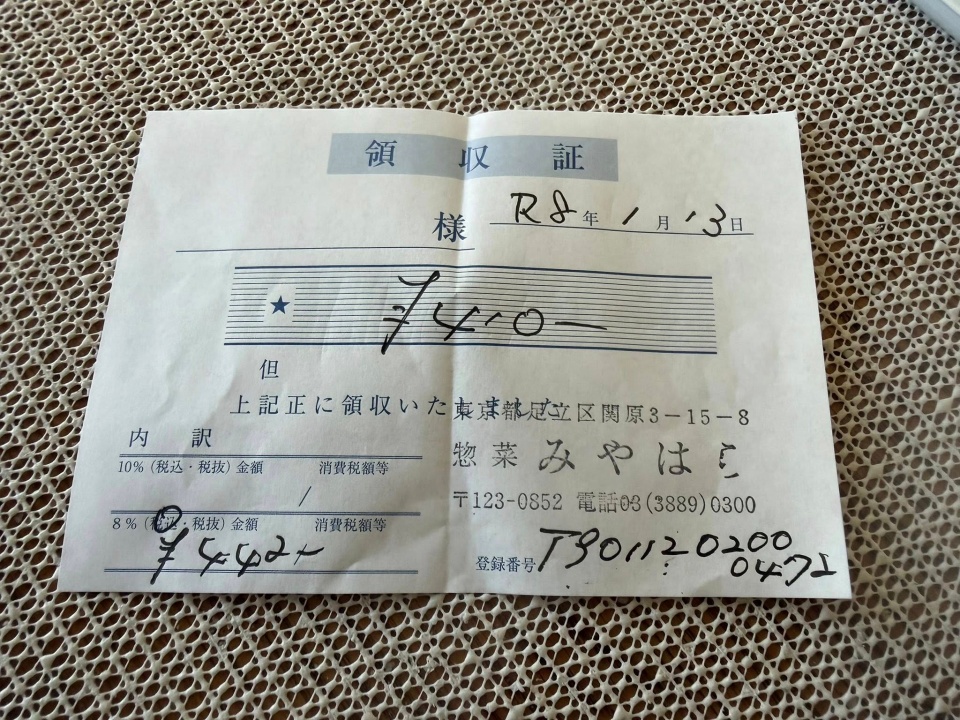 領収証
様 R8年 1月 13日
★ ¥410-
但
上記正に領収いたしました
東京都足立区関原3-15-8
惣菜 みやはら
〒123-0852 電話03(3889)0300
内訳
10%(税込・税抜)金額 消費税額等
/
8%(税込・税抜)金額 消費税額等
登録番号